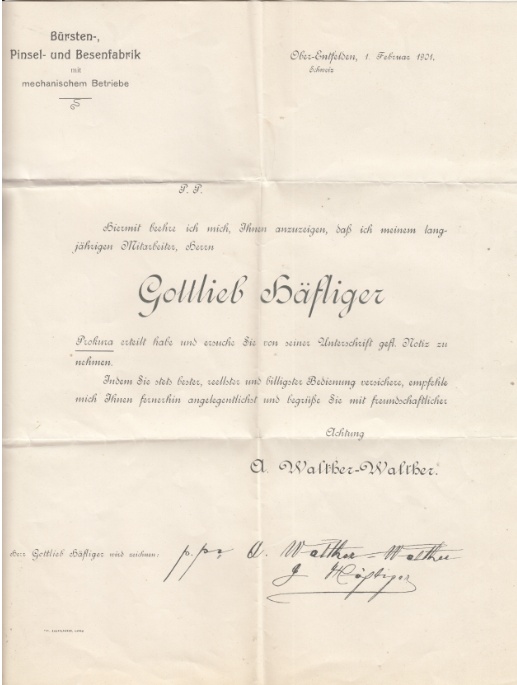 Bürsten-,
Pinsel- und Besenfabrik
mit
mechanischem Betriebe
Ober-Entfelden, 1. Februar 1901.
Schweiz
P. P.
Hiermit beehre ich mich, Ihnen anzuzeigen, daß ich meinem lang-
jährigen Mitarbeiter, Herrn
Gottlieb Häfliger
Prokura erteilt habe und ersuche Sie von seiner Unterschrift gefl. Notiz zu
nehmen.
Indem Sie stets bester, reellster und billigster Bedienung versichere, empfehle
mich Ihnen fernerhin angelegentlichst und begrüße Sie mit freundschaftlicher
Achtung
A. Walther-Walther.
Herr Gottlieb Häfliger wird zeichnen: p. pa A. Walther-Walther
G Häfliger